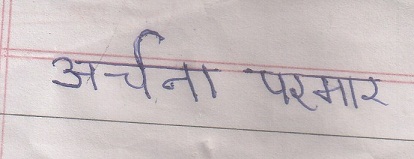 अर्चना परमार